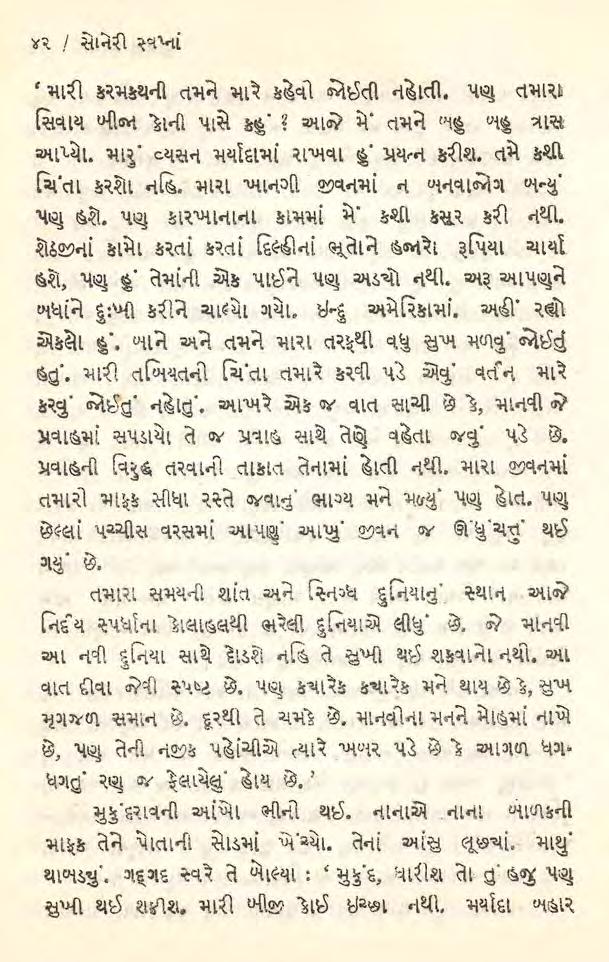 ૪૨ / સોનેરી સ્વપ્નાં
‘ મારી કરમકથની તમને મારે કહેવી જોઈતી નહોતી. પણ તમારા
સિવાય બીજા કોની પાસે કહું ? આજે મેં તમને બહુ બહુ ત્રાસ
આપ્યો. મારું વ્યસન મર્યાદામાં રાખવા હું પ્રયત્ન કરીશ. તમે કશી
ચિંતા કરશો નહિ. મારા ખાનગી જીવનમાં ન બનવાજોગ બન્યું
પણ હશે. પણ કારખાનાના કામમાં મેં કશી કસૂર કરી નથી.
શેઠજીનાં કામો કરતાં કરતાં દિલ્હીનાં ભૂતોને હજારો રૂપિયા ચાર્યા
હશે, પણ હું તેમાંની એક પાઈને પણ અડચો નથી. અરૂ આપણને
બધાંને દુઃખી કરીને ચાલ્યો ગયો. ઇન્દુ અમેરિકામાં. અહીં રહ્યો
એકલો હું. બાને અને તમને મારા તરફથી વધુ સુખ મળવું જોઈતું
હતું. મારી તબિયતની ચિંતા તમારે કરવી પડે એવું વર્તન મારે
કરવું જોઈતું નહોતું. આખરે એક જ વાત સાચી છે કે, માનવી જે
પ્રવાહમાં સપડાયો તે જ પ્રવાહ સાથે તેણે વહેતા જવું પડે છે.
પ્રવાહની વિરુદ્ધ તરવાની તાકાત તેનામાં હોતી નથી. મારા જીવનમાં
તમારી માફક સીધા રસ્તે જવાનું ભાગ્ય મને મળ્યું પણ હોત. પણ
છેલ્લાં પચ્ચીસ વરસમાં આપણું આખું જીવન જ ઊંધુંચત્તું થઈ
ગયું છે.
તમારા સમયની શાંત અને સ્નિગ્ધ દુનિયાનું સ્થાન આજે
નિર્દય સ્પર્ધાના કોલાહલથી ભરેલી દુનિયાએ લીધું છે. જે માનવી
આ નવી દુનિયા સાથે દોડશે નહિ તે સુખી થઈ શકવાનો નથી. આ
વાત દીવા જેવી સ્પષ્ટ છે. પણ કયારેક કયારેક મને થાય છે કે, સુખ
મૃગજળ સમાન છે. દૂરથી તે ચમકે છે. માનવીના મનને મોહમાં નાખે
છે, પણ તેની નજીક પહોંચીએ ત્યારે ખબર પડે છે કે આગળ ધગ-
ધગતું રણ જ ફેલાયેલું હોય છે.’
મુકુંદરાવની આંખો ભીની થઈ. નાનાએ નાના બાળકની
માફક તેને પોતાની સોડમાં ખેંચ્યો. તેનાં આંસુ લૂછચાં. માથું
થાબડચું. ગદ્ગદ સ્વરે તે બોલ્યા : ‘ મુકુંદ, ધારીશ તો તું હજુ પણ
સુખી થઈ શકીશ. મારી બીજી કોઈ ઇચ્છા નથી. મર્યાદા બહાર